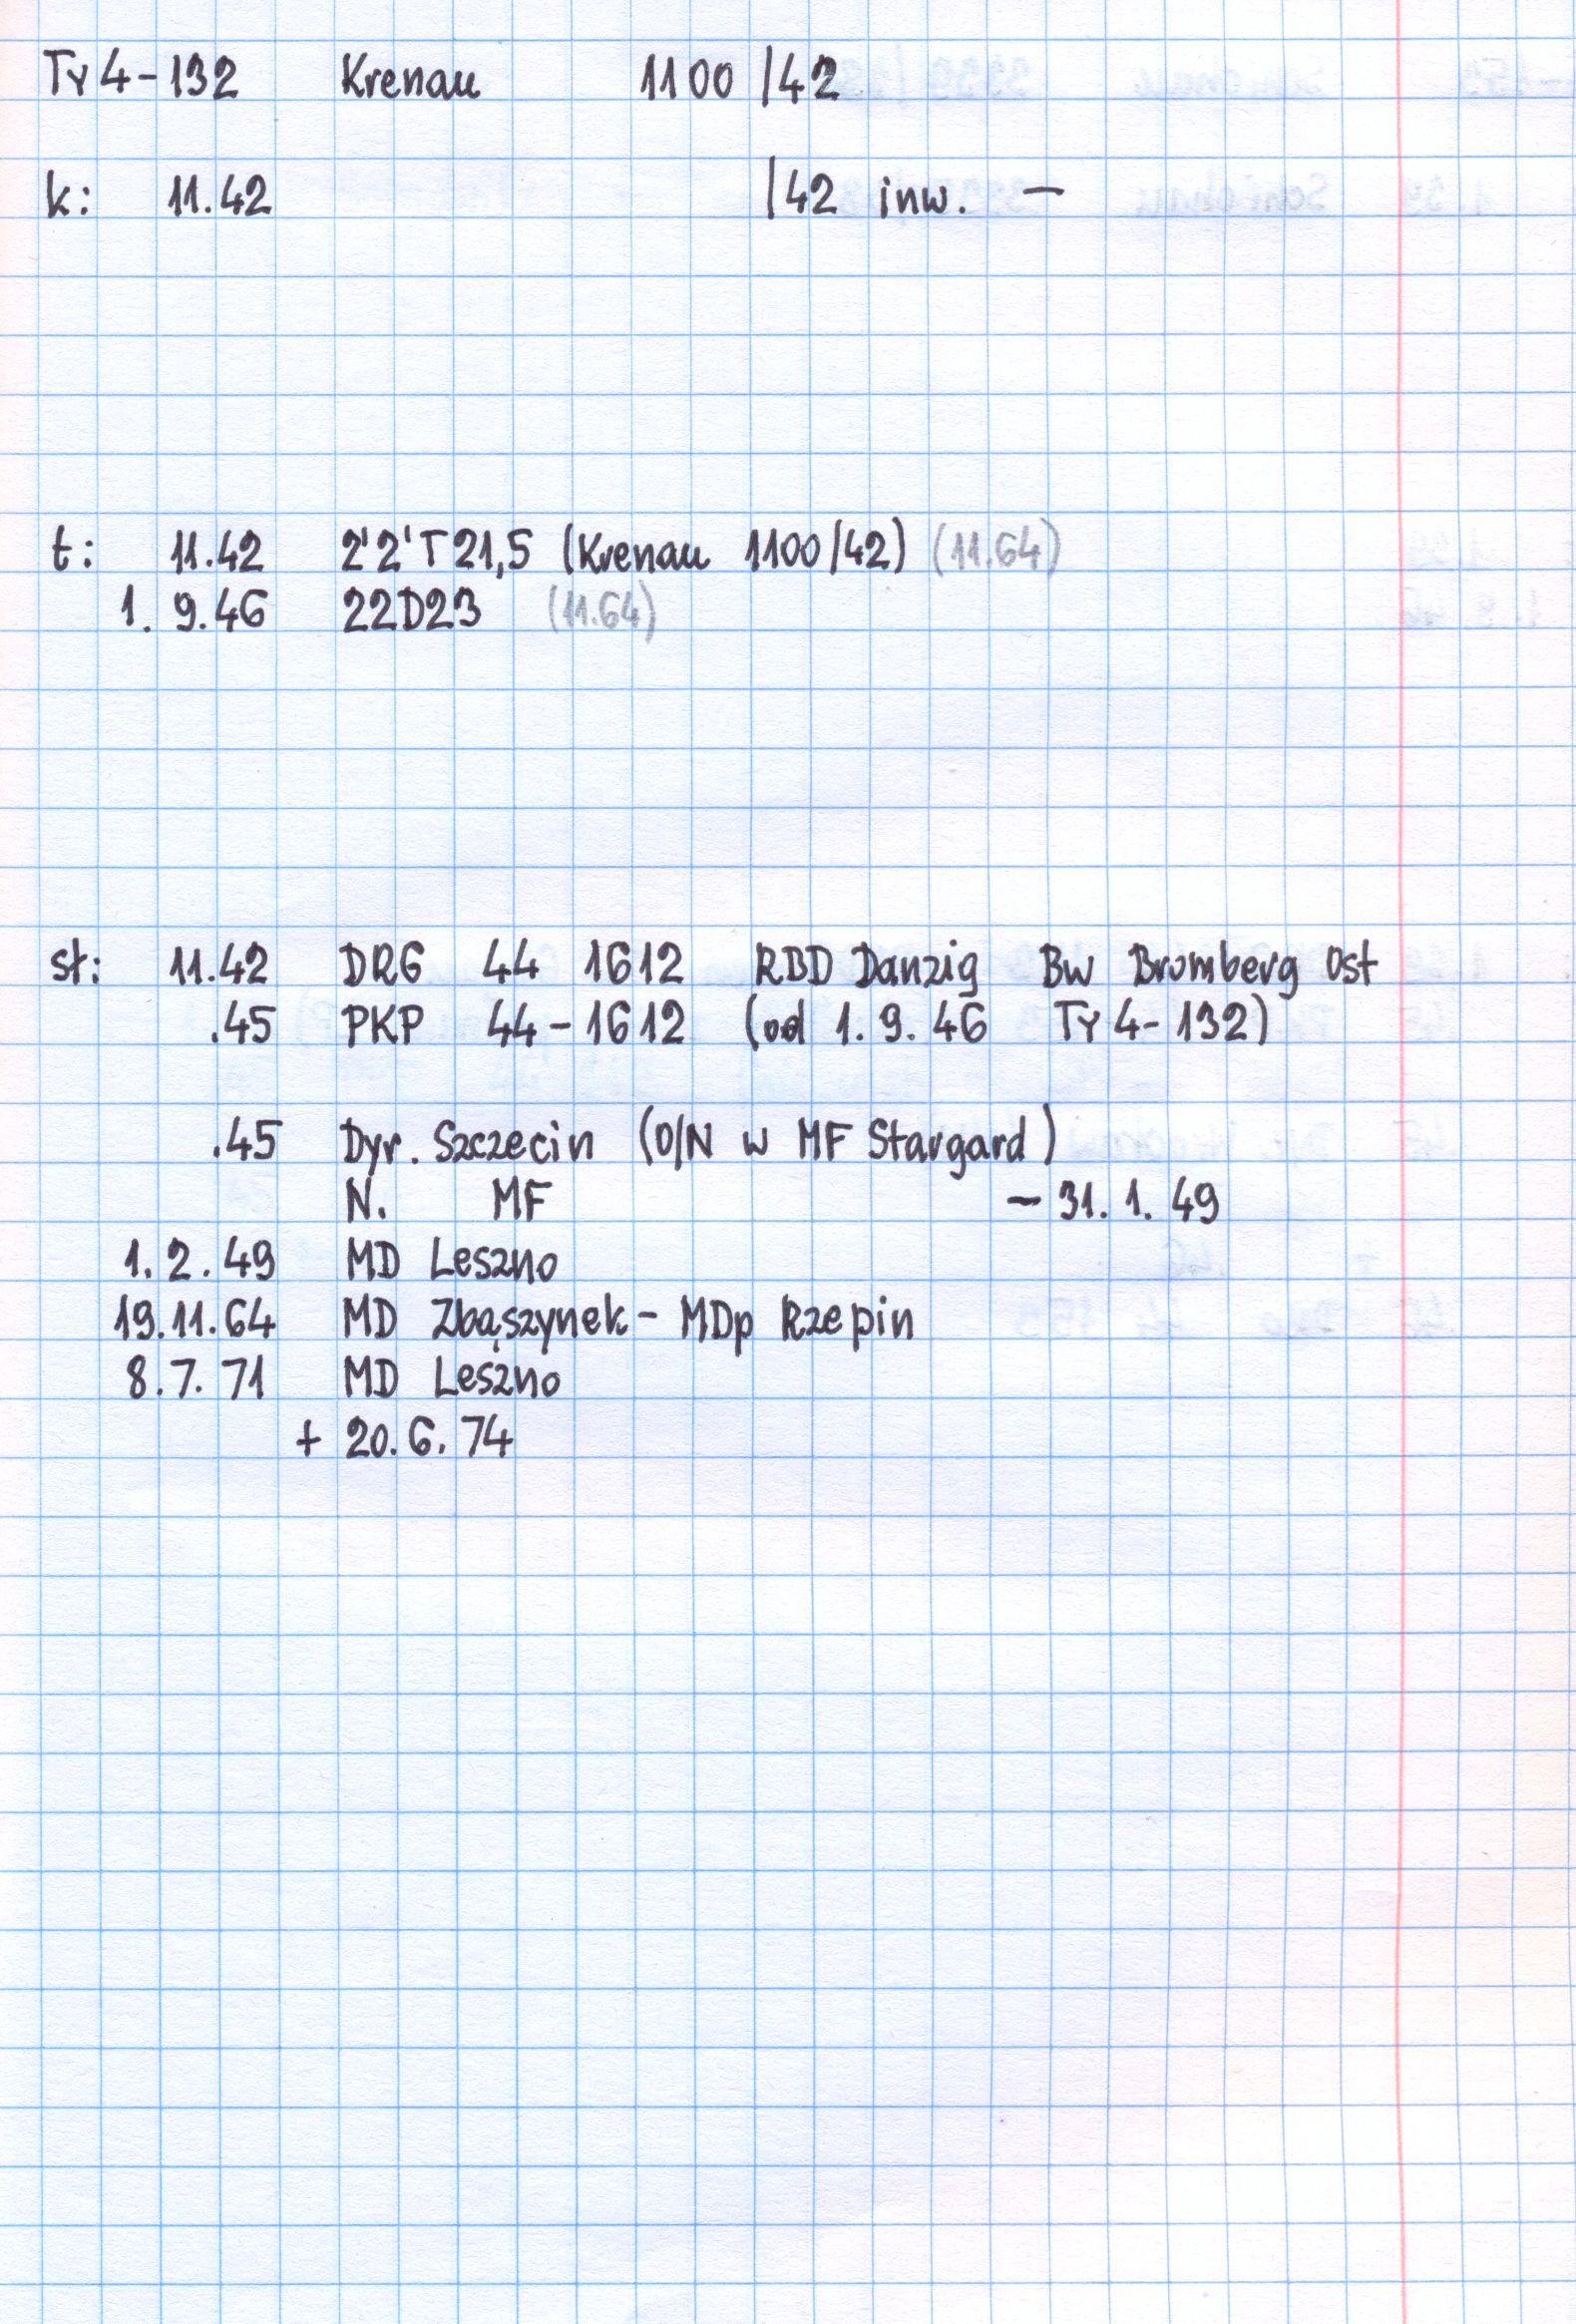 Ty4-132 Krenau 1100 /42
k: 11.42 /42 inw. —
t: 11.42 2'2'T21,5 (Krenau 1100/42) (11.64)
1. 9.46 22D23 (11.64)
st: 11.42 DRG 44 1612 RBD Danzig Bw Bromberg Ost
.45 PKP 44-1612 (od 1.9.46 Ty4-132)
.45 Dyr. Szczecin (O/N w MF Stargard)
N. MF — 31.1.49
1.2.49 MD Leszno
19.11.64 MD Zbąszynek - MDp Rzepin
8.7.71 MD Leszno
+ 20.6.74